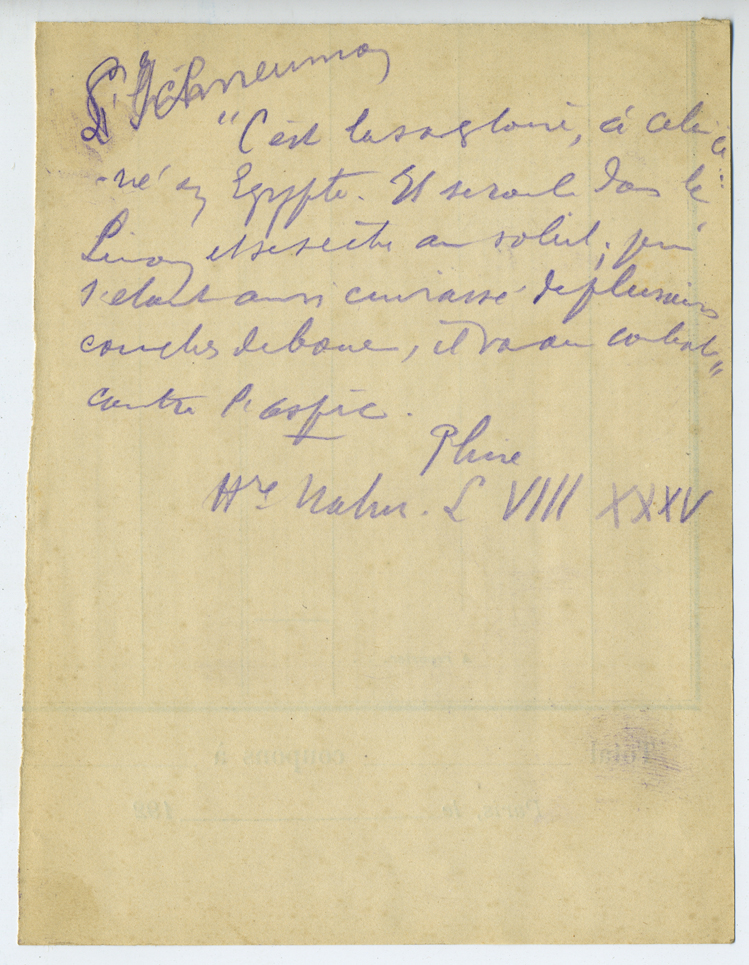 L'Ichneumon
"C'est la sa gloire, à celui ci
né en Egypte. Il se roule dans le
Limon et se sèche au soleil; puis
s'étant ainsi cuirassé de plusieurs
couches de boue, il va au combat"
contre l'aspic.
Pline
Hre Natur. L VIII XXXV
Total coupons à
Paris, le 189